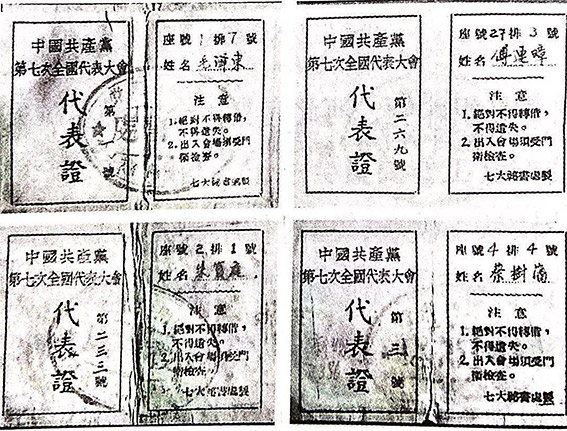 中國共產黨
第七次全國代表大會
代表證
第一號
座號1排7號
姓名 毛澤東
注意
1.絕對不得轉借,
不得遺失。
2.出入會場須受門
衛檢查。
七大祕書處製
中國共產黨
第七次全國代表大會
代表證
第二六九號
座號27排3號
姓名 傅連暲
注意
1.絕對不得轉借,
不得遺失。
2.出入會場須受門
衛檢查。
七大祕書處製
中國共產黨
第七次全國代表大會
代表證
第二三三號
座號2排1號
姓名
注意
1.絕對不得轉借,
不得遺失。
2.出入會場須受門
衛檢查。
七大祕書處製
中國共產黨
第七次全國代表大會
代表證
第三 號
座號4排4號
姓名 蔡樹藩
注意
1.絕對不得轉借,
不得遺失。
2.出入會場須受門
衛檢查。
七大祕書處製